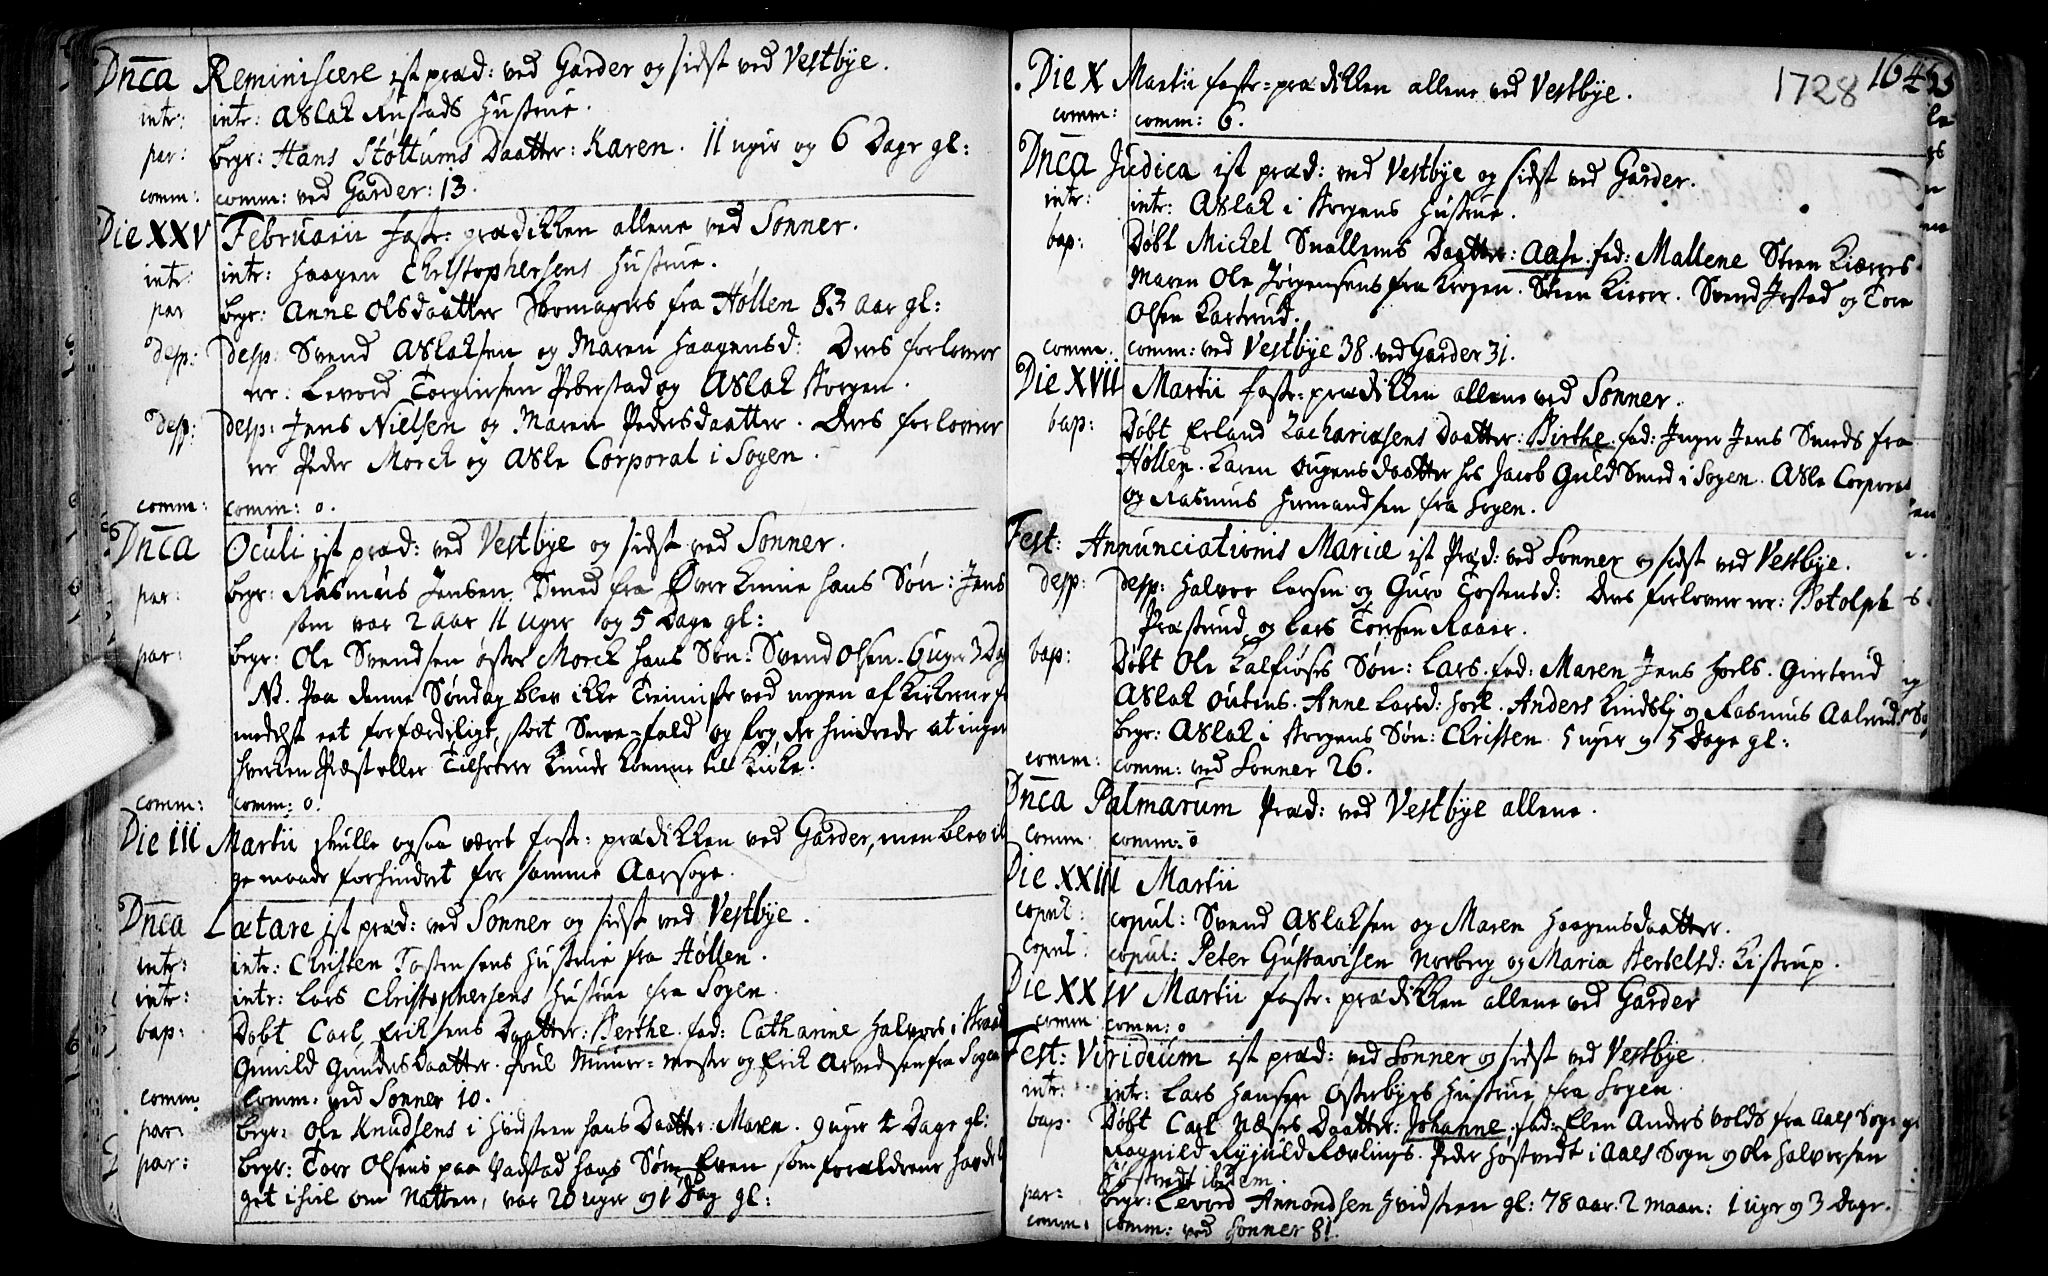 Dnca Reminiscere ist præd: ved Garder og sidst ved Vestbye.
intr: intr: Aslak Rustads Hustrue.
par: begr: Hans Støttums Daatter: Karen. 11 uger og 6 Dage gl:
comm: comm: ved Garder: 13.
Die XXV Februarii faste-prædikken allene ved Sonner.
intr: intr: Haagen Christophersens Hustrue.
par begr: Anne Olsdaatter Skomagers fra Høllen 83 aar gl:
desp: desp: Svend Aslaksen og Maren Haagensd: Deres forlovere
er: Levord Torgiersen Peberstad og Aslak Korgen.
desp: desp: Jens Nielsen og Maren Pedersdaatter. Deres forlovere
er Peder Morck og Asle Corporal i Sogen.
comm: comm: 0.
Dnca Oculi ist præd: ved Vestbye og sidst ved Sonner.
par: begr: Rasmus Jensen Smed fra Øvre hans Søn: Jens
som var 2 aar 11 uger og 5 Dage gl:
par: begr: Ole Svendsen østre Morck hans Søn: Svend Olsen. 6 uger 3 Dag
NB. Paa denne Søndag blev ikke Tieniste ved nogen af Kirkerne
medelst eet forfærdeligt, stort Snee-fald og fog der hindrede at ingen
hverken Præst eller Tilhører kunde komme til Kirke.
comm: comm: 0.
Die III Martii skulle ogsaa været faste-prædikken ved Garder, men blev
ge maade forhindret for samme Aarsage.
Dnca Lætare ist præd: ved Sonner og sidst ved Vestbye.
intr: intr: Christen Tostensens Hustrue fra Høllen.
intr: intr: Lars Christophersens Hustrue fra Sogen.
bap: Døbt Carl Eriksens Daatter: Berthe. fad: Catharine Halvors i
Gunild Gundersdaatter. Poul Muur-mester og Erik Arvedsen fra Sogen
comm comm: ved Sonner 10.
par: begr: Ole Knudsens i Hvidsteen hans Daatter: Maren. 9 uger 4 Dage gl:
par: begr: Tore Olsens paa Vadstad hans Søn Even som forældrene havde
get ihiel om Natten, var 20 uger og 1 Dag gl:
1728 164
Die X Martii faste-prædikken allene ved Vestbye.
comm: comm: 6.
Dnca Judica ist præd: ved Vestbye og sidst ved Garder.
intr: intr: Aslak i Korgens Hustrue.
bap: Døbt Michel Snallems Daatter: Aase. fad: Mallene Steen Kiærres
Maren Ole Jørgensens fra Krogen. Steen Kierre. Svend Jestad og Tore
Olsen Kartrud.
comm. comm: ved Vestbye 38. ved Garder 31.
Die XVII Martii faste-prædikken allene ved Sonner.
bap: Døbt Erland Zachariasens Daatter: Birthe. fad: Inger Jens Smeds fra
Høllen. Karen Augensdaatter hos Jacob Guldsmed i Sogen. Asle Corporal
og Rasmus Hermandsen fra Sogen.
Fest: Annunciationis Mariæ ist Præd: ved Sonner og sidst ved Vestbye.
desp: desp: Halvor Larsen og Guro Tostensd: Deres forlovere er: Botolph
Præstrud og Lars Torersen Raaer.
bap: Døbt Ole Kalfiøses Søn: Lars. fad: Maren Jens Hoels. Giertrud
Aslak Outens. Anne Larsd: Hoel. Anders Kindsly og Rasmus Aalerud
begr: Aslak i Korgens Søn: Christen 5 uger og 5 Dage gl:
comm: comm: ved Sonner 26.
Dnca Palmarum Præd: ved Vestbye allene.
comm comm: 0
Die XXIII Martii
copul: copul: Svend Aslaksen og Maren Haagensdaatter.
copul: copul: Peter Gustavisen Norberg og Maria Kistrup.
Die XXIV Martii faste-prædikken allene ved Garder
comm comm: 0
Fest: Viridium ist præd: ved Sonner og sidst ved Vestbye
intr: intr: Lars Hansen Østerbyes Hustrue fra Sogen.
bap. Døbt Carl Næses Daatter: Johanne. fad: Elen Anders Volds fra Aals Sogn
Ragnild Ryjuld Rævlings. Peder Høstvedt i Aals Sogn og Ole Halvorsen
Høstvedt ibidem.
par: begr: Levord Annondsen Hvidsteen gl: 78 aar. 2 maan: 1 uger og 3 Dage.
comm: comm: ved Sonner 81.